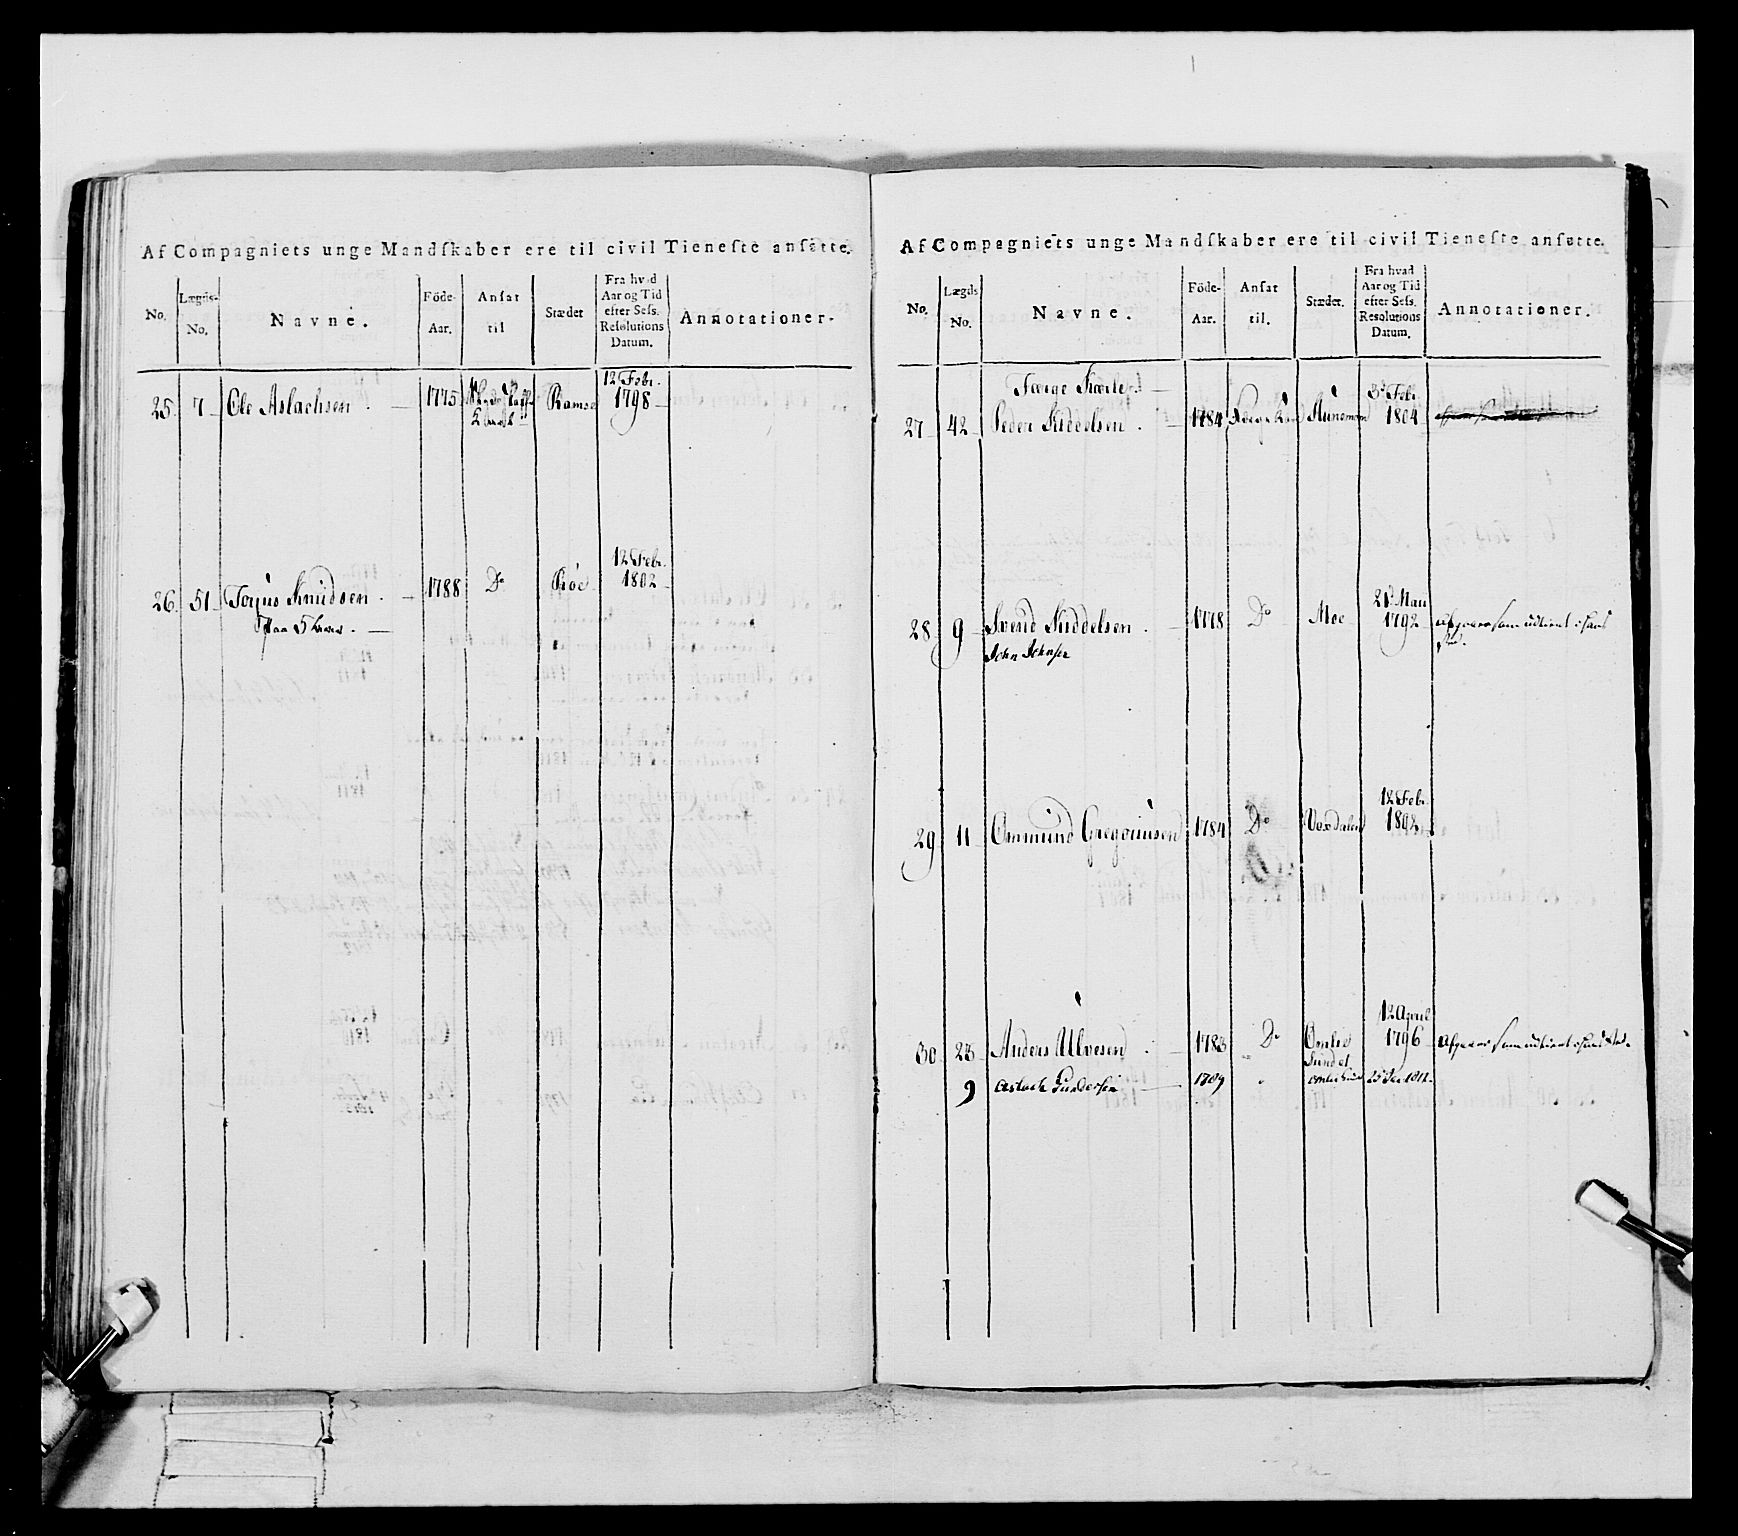 Af Compagniets unge Mandskaber ere til civil Tieneste ansatte.
No. Lægds-No. Navne. Föde-Aar. Ansat til Stædet Fra hvad Aar og Tid efter Sess. Resolutions Datum. Annotationer.
25. 7 Ole Aslachsen. 1775 Ramse 12 Febr. 1798
26. 51 Torjus Knudsen. 1788 Do Röe 12 Febr. 1802
Af Compagniets unge Mandskaber ere til civil Tieneste ansatte.
No. Lægds No. Navne. Föde-Aar. Ansat til. Stædet. Fra hvad Aar og Tid efter Sess. Resolutions Datum. Annotationer.
Færge Karle.
27 42 Peder Kiddelsen. 1784 3d Febr. 1804
28 9 Svend Kiddelsen. 1778 Do Moe 21d Maii 1792
John Johnsen
29 11 Ommund Gregoriusen 1784 Do Vexdalen 12 Febr. 1802
30 23 Anders Ulvesen. 1783 Do Omlie Sundet 12 April 1796
9 Aslack Gundersen 1789